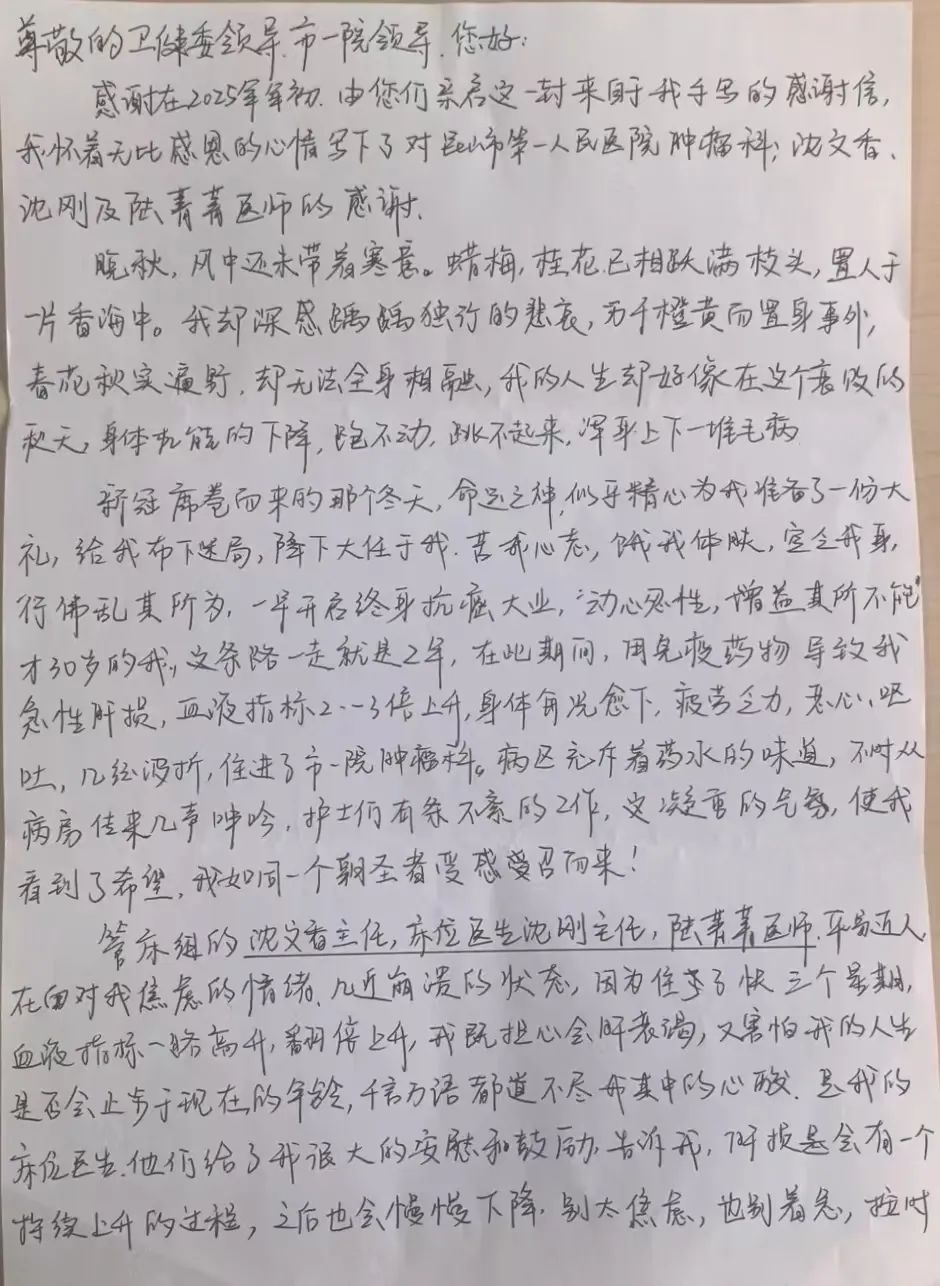 尊敬的卫健委领导、市一院领导、您好：
感谢在2025年年初、由您们亲启这一封来自于我手写的感谢信，
我怀着无比感恩的心情写下了对昆山市第一人民医院肿瘤科；沈文香、
沈刚及陆菁菁医师的感谢.
晚秋，风中还未带着寒意。蜡梅，桂花已相跃满枝头，置人于
一片香海中。我却深感踽踽独行的悲哀，万千橙黄而置身事外，
春花秋实遍野，却无法全身相融，我的人生却好像在这个衰败的
秋天，身体机能的下降，跑不动，跳不起来，浑身上下一堆毛病
新冠席卷而来的那个冬天，命运之神，似乎精心为我准备了一份大
礼，给我布下迷局，降下大任于我.苦我心志，饿我体肤，空乏我身，
行佛乱其所为，一早开启终身抗癌大业，“动心忍性，增益其所不能”
才30岁的我，这条路一走就是2年，在此期间，用免疫药物导致我
急性肝损，血液指标2--3倍上升，身体每况愈下，疲劳乏力，恶心、呕
吐，几经波折，住进了市一院肿瘤科。病区充斥着药水的味道，不时从
病房传来几声呻吟，护士们有条不紊的工作，这凝重的气氛，使我
看到了希望，我如同一个朝圣者受感爱召而来！
管床组的沈文香主任，床位医生沈刚主任，陆菁菁医师.平易近人，
在面对我焦虑的情绪、几近崩溃的状态，因为住了快三个星期，
血液指标一路高升，翻倍上升，我既担心会肝衰竭，又害怕我的人生
是否会止步于现在的年龄，千言万语都道不尽我其中的心酸.是我的
床位医生.他们给了我很大的安慰和鼓励.告诉我，肝损是会有一个
持续上升的过程，之后也会慢慢下降.别太焦虑，也别着急，按时